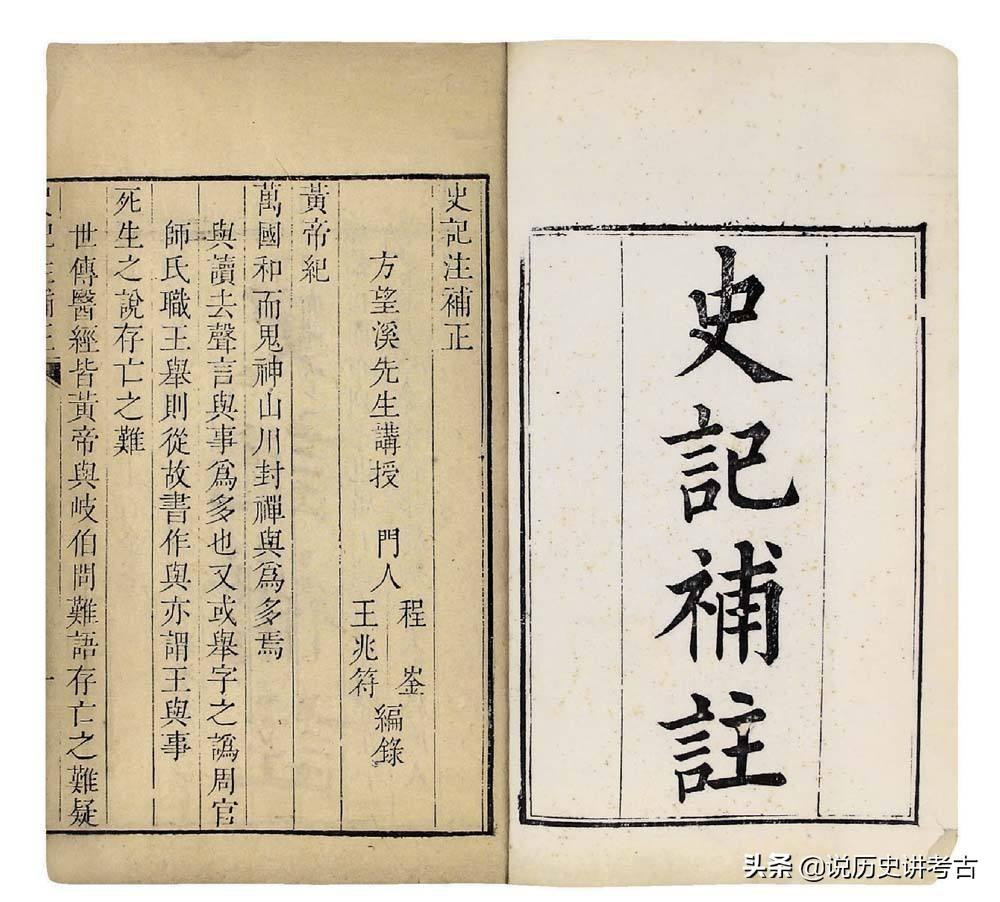 史記補註
史記注補正
方望溪先生講授 門人 程崟 王兆符 編錄
黃帝紀
萬國和而鬼神山川封禪與爲多焉
與讀去聲言與事爲多也又或舉字之譌周官
師氏職王舉則從故書作與亦謂王與事
死生之說存亡之難
世傳醫經皆黃帝與岐伯問難語存亡之難疑
一
头条 @说历史讲考古